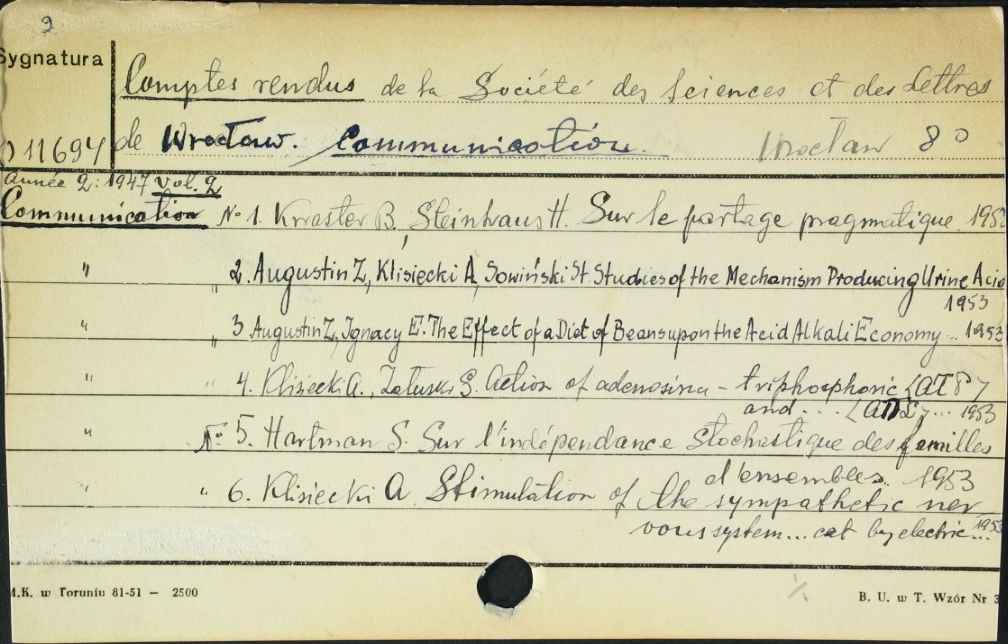 2
Sygnatura
Comptes rendus de la Société des Sciences et des Lettres
11694 de Wrocław. Communication. Wrocław 8°
Année 2: 1947 Vol. 2
Communication No 1. Knaster B, Steinhaus H. Sur le partage pragmatique. 195
" " 2. Augustin Z, Klisiecki A, Sowiński St Studies of the Mechanism Producing Urine Acid
1953
" " 3 Augustin Z, Ignacy E. The Effect of a Diet of Beans upon the Acid Alkali Economy .. 1953
" " 4. Klisiecki A., S. Action of adenosina - triphosphoric
and ... 1953
" No 5. Hartman S. Sur l'indépendance stochastique des familles
d'ensembles. 1953
" " 6. Klisiecki A Stimulation of the sympathetic ner
vous system... cat by electric... 1953
M.K. w Toruniu 81-51 — 2500
B. U. w T. Wzór Nr 3